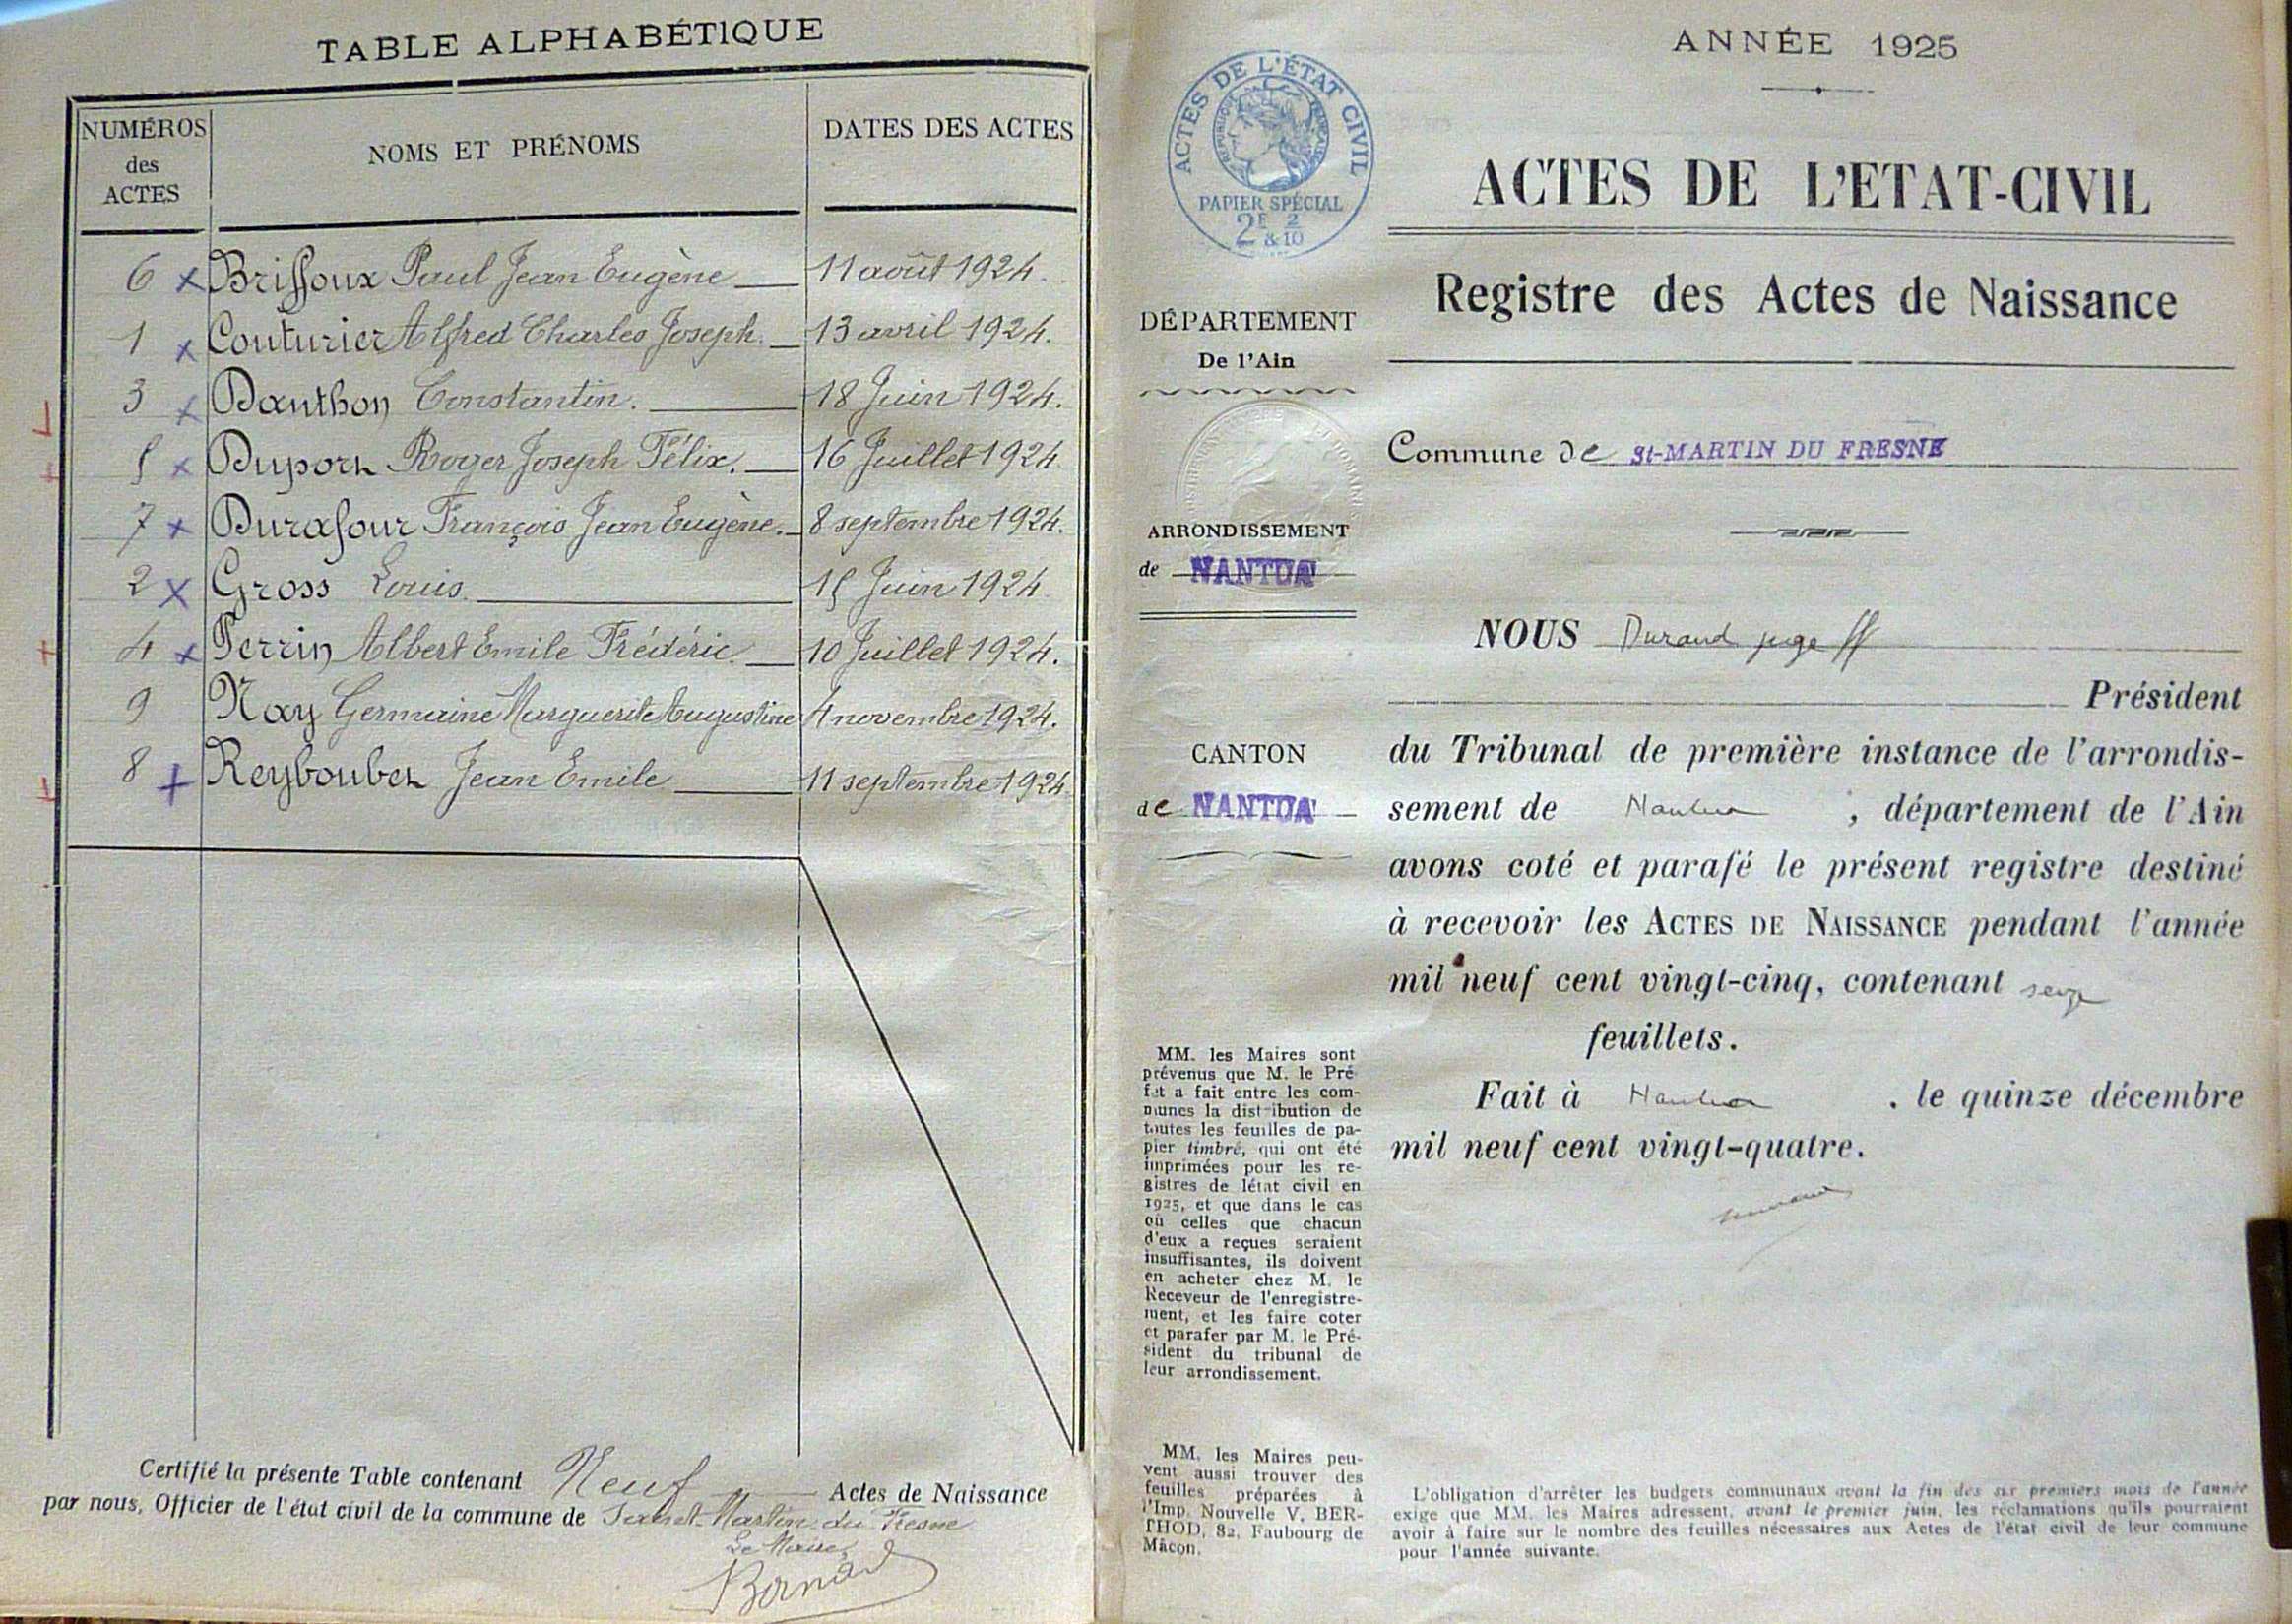 TABLE ALPHABÉTIQUE
NUMÉROS des ACTES
NOMS ET PRÉNOMS
DATES DES ACTES
6 x Brissoux Paul Jean Eugène 11 août 1924.
1 x Couturier Alfred Charles Joseph. 13 avril 1924.
3 x Danthon Constantin. 18 Juin 1924.
5 x Duport Roger Joseph Félix. 16 Juillet 1924
7 x Durafour François Jean Eugène. 8 septembre 1924.
2 x Gross Louis. 15 Juin 1924
4 x Perrin Albert Emile Frédéric. 10 Juillet 1924.
9 Nay Germaine Marguerite Augustine 4 novembre 1924.
8 + Reyboubet Jean Emile 11 septembre 1924.
Certifié la présente Table contenant Neuf Actes de Naissance
par nous, Officier de l'état civil de la commune de Saint-Martin-du-Fresne
Le Maire,
ANNÉE 1925
ACTES DE L'ÉTAT CIVIL
RÉPUBLIQUE FRANÇAISE
PAPIER SPÉCIAL
2F & 2/10
ACTES DE L'ETAT-CIVIL
Registre des Actes de Naissance
DÉPARTEMENT
De l'Ain
Commune de St-MARTIN DU FRESNE
ARRONDISSEMENT
de NANTUA
CANTON
de NANTUA
NOUS Durand juge ff
Président
du Tribunal de première instance de l'arrondis-
sement de Nantua , département de l'Ain
avons coté et parafé le présent registre destiné
à recevoir les ACTES DE NAISSANCE pendant l'année
mil neuf cent vingt-cinq, contenant seize
feuillets.
Fait à Nantua . le quinze décembre
mil neuf cent vingt-quatre.
MM. les Maires sont
prévenus que M. le Pré
fet a fait entre les com-
munes la distribution de
toutes les feuilles de pa-
pier timbré, qui ont été
imprimées pour les re-
gistres de létat civil en
1925, et que dans le cas
où celles que chacun
d'eux a reçues seraient
insuffisantes, ils doivent
en acheter chez M. le
Receveur de l'enregistre-
ment, et les faire coter
et parafer par M. le Pré-
sident du tribunal de
leur arrondissement.
MM. les Maires peu-
vent aussi trouver des
feuilles préparées à
l'Imp. Nouvelle V. BER-
THOD, 82, Faubourg de
Mâcon.
L'obligation d'arrêter les budgets communaux avant la fin des six premiers mois de l'année
exige que MM. les Maires adressent, avant le premier juin, les réclamations qu'ils pourraient
avoir à faire sur le nombre des feuilles nécessaires aux Actes de l'état civil de leur commune
pour l'année suivante.